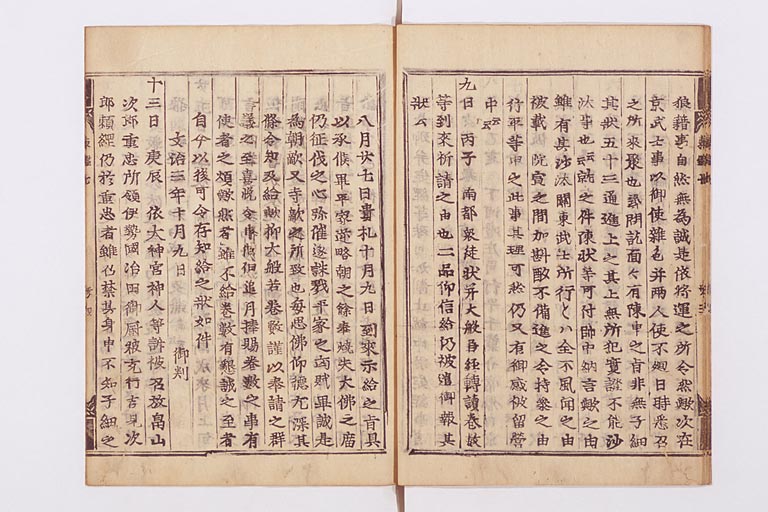 狼藉事自然無為誠是依将運之所令然歟次在
京武士事以御使雜色并兩人使不廻日時悉召
之所來聚也為問訖面々有陳申之旨非無子細
其状五十三通進上之其上無所犯實證不能沙
汰事也云就之件陳状等可付帥中納言歟之由
雖有其沙汰關東武士所行ハ全不風聞之由
被載院宣之間加斟酌不備進之令持參之由
行平等申之此事其理可然仍又有御感被留營
中云云
九日 丙子 南都衆徒状并大般若經轉讀巻数
等到來祈請之由也二品仰信給仍被遣御報其
状云
八月廿七日貴札十月九日到來示給之旨具
以承候畢平家滅略朝之餘奉燒失大佛之
仍征伐之心殊催遂誅戮平家之畢誠是
為朝敵又寺敵之所致也毎思佛仰德尤深其
條令知及給歟抑大般若巻数謹以奉請之群
議之至喜悦令申候但追月捧賜巻數之事有
使者之煩歟然者雖不給巻數有懇誠之至者
自今以後可令存知給之状如件
文治三年十月九日 御判
十三日 庚辰 依太神宮神人等訴被召放畠山
次郎重忠所領伊勢國治田御厨被充行吉見次
郎頼經仍於重忠者雖召禁其身申不知子細之